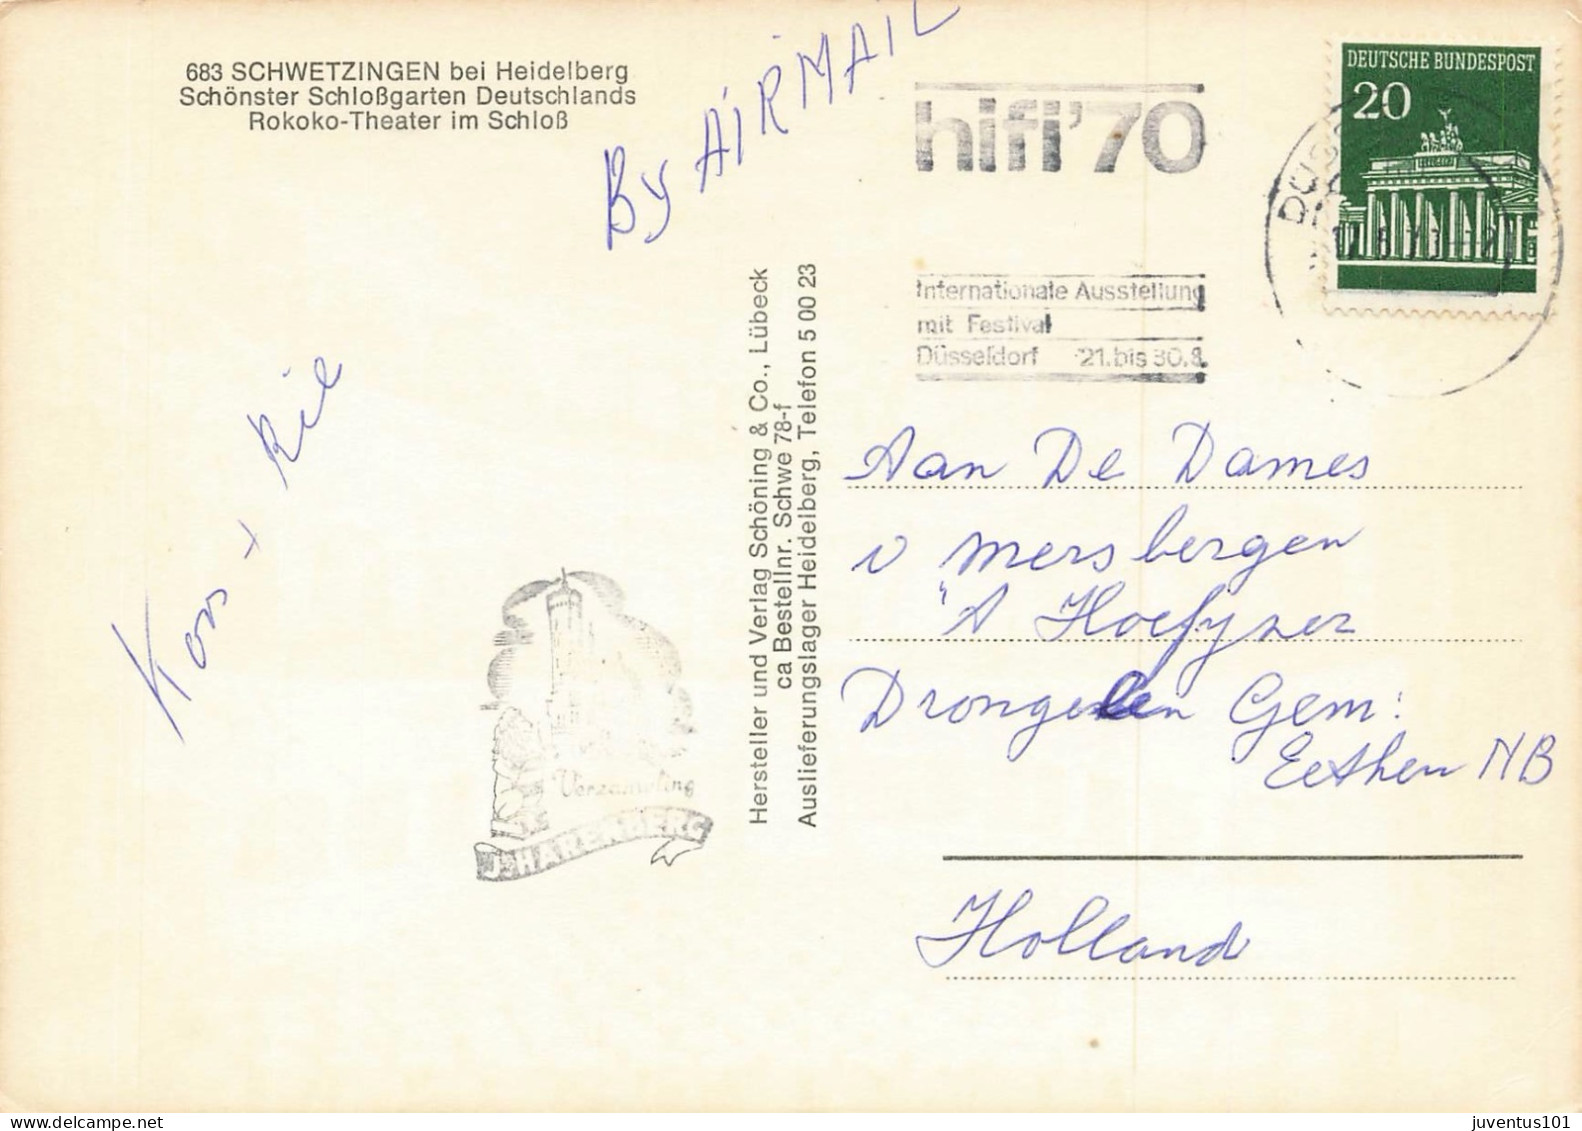 683 SCHWETZINGEN bei Heidelberg
Schönster Schloßgarten Deutschlands
Rokoko-Theater im Schloß
By AIRMAIL
hifi'70
Internationale Ausstellung
mit Festival
Düsseldorf 21. bis 30.8.
DEUTSCHE BUNDESPOST
20
Hersteller und Verlag Schöning & Co., Lübeck
ca Bestellnr. Schwe 78-f
Auslieferungslager Heidelberg, Telefon 5 00 23
Kors + Ril
Verzameling
J. HARENBERG
Aan De Dames
v Mersbergen
"A Hoefyzer
Drongelen Gem:
Eethen NB
Holland
juventus101